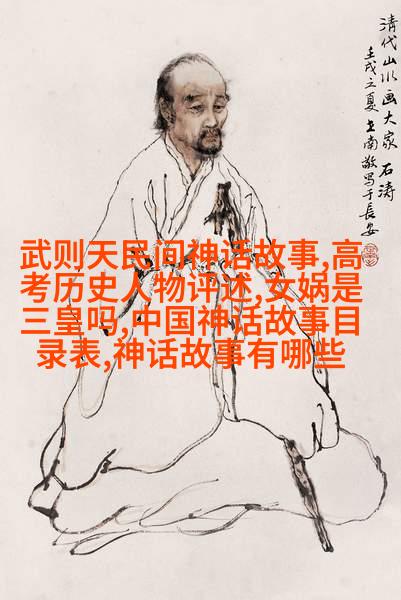 清代山水画大家 石涛
壬戌之夏 南敬写于長安
武则天民间神话故事,高
考历史人物评述,女娲是
三皇吗,中国神话故事目
录表,神话故事有哪些